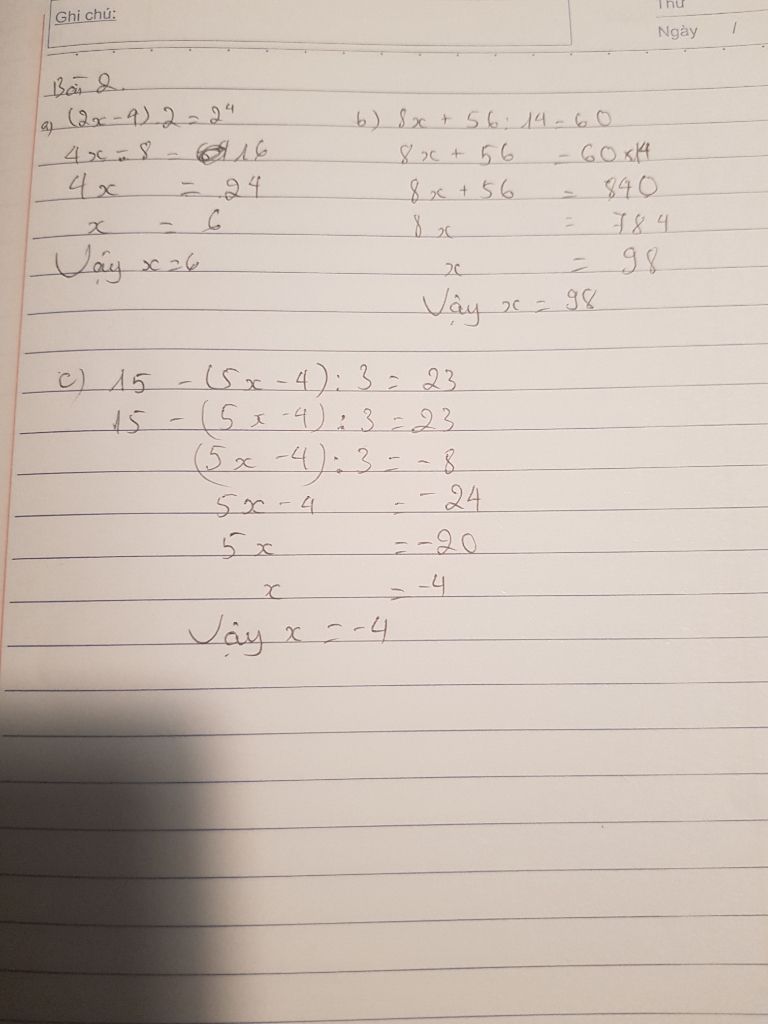 Ghi chú:
Thứ
Ngày /
Bài 2.
a) (2x-4).2=2⁴
4x=8 - 16
4x = 24
x = 6
Vậy x=6
b) 8x + 56: 14=60
8x + 56 = 60x14
8x + 56 = 840
8x = 784
x = 98
Vậy x = 98
c) 15 - (5x -4): 3 = 23
15 - (5x -4): 3 = 23
(5x -4): 3 = -8
5x - 4 = -24
5x = -20
x = -4
Vậy x = -4